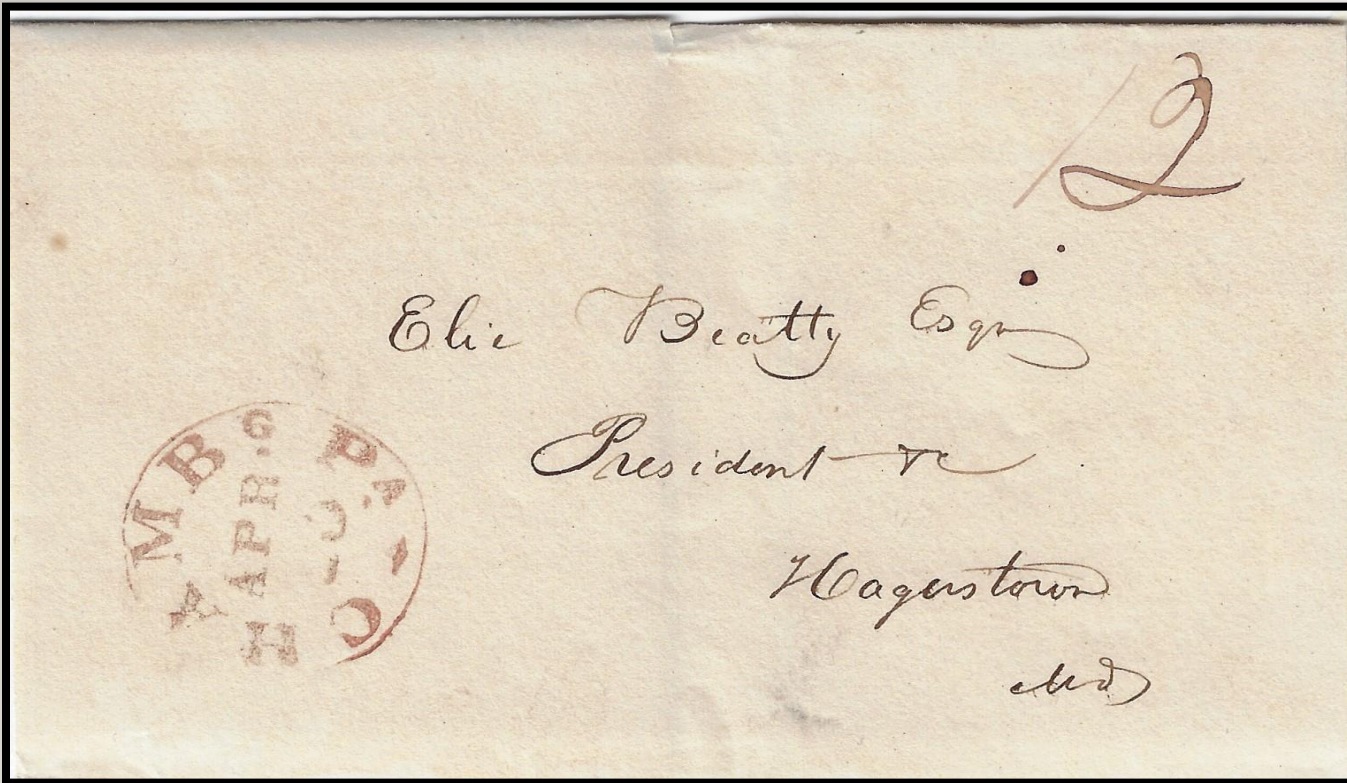 12
Elie Beatty Esqr
President &c
Hagerstown
Md
CHAMBG. PA.
APR.